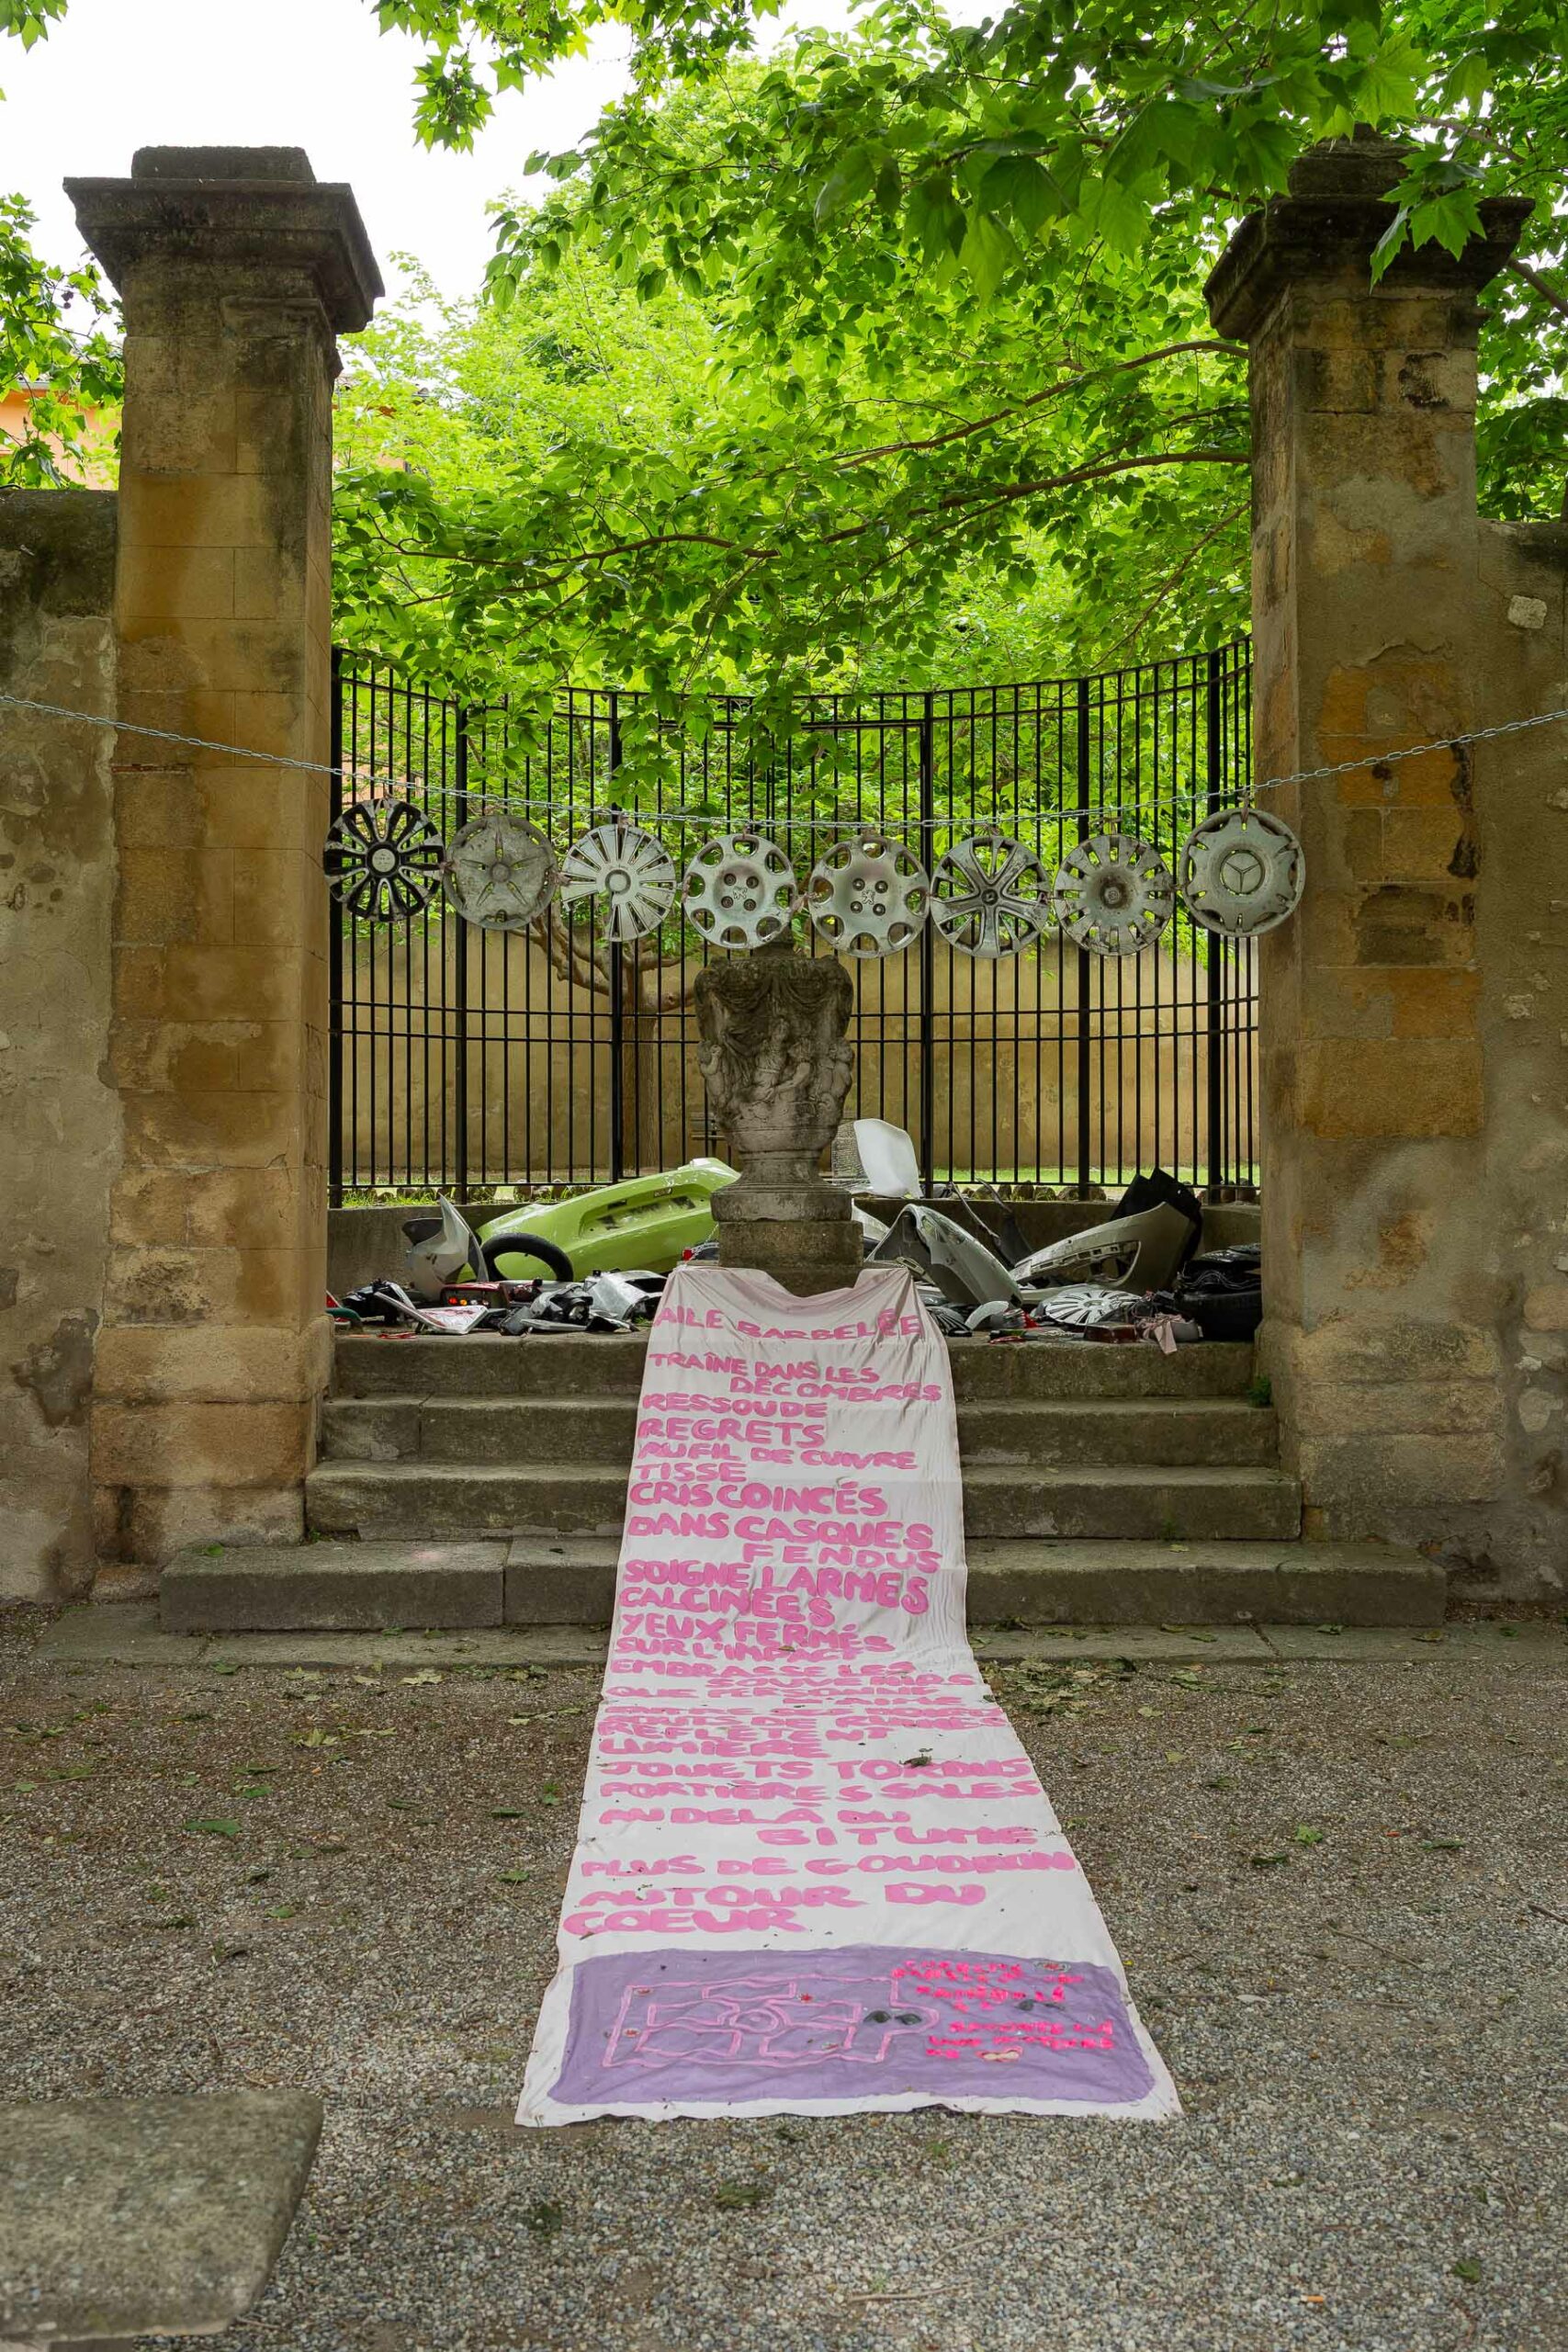 AILE BARBELÉE
TRAÎNE DANS LES
DÉCOMBRES
RESSOUDE
REGRETS
AU FIL DE CUIVRE
TISSE
CRIS COINCÉS
DANS CASQUES
FENDUS
SOIGNE LARMES
CALCINÉES
YEUX FERMÉS
SUR L'IMPACT
EMBRASSE LES
SOUVENIRS
QUE
REFLÈTE
LUMIÈRE
JOUETS TORDUS
PORTIÈRES SALES
AU DELÀ DU
BITUME
PLUS DE GOUDRON
AUTOUR DU
COEUR